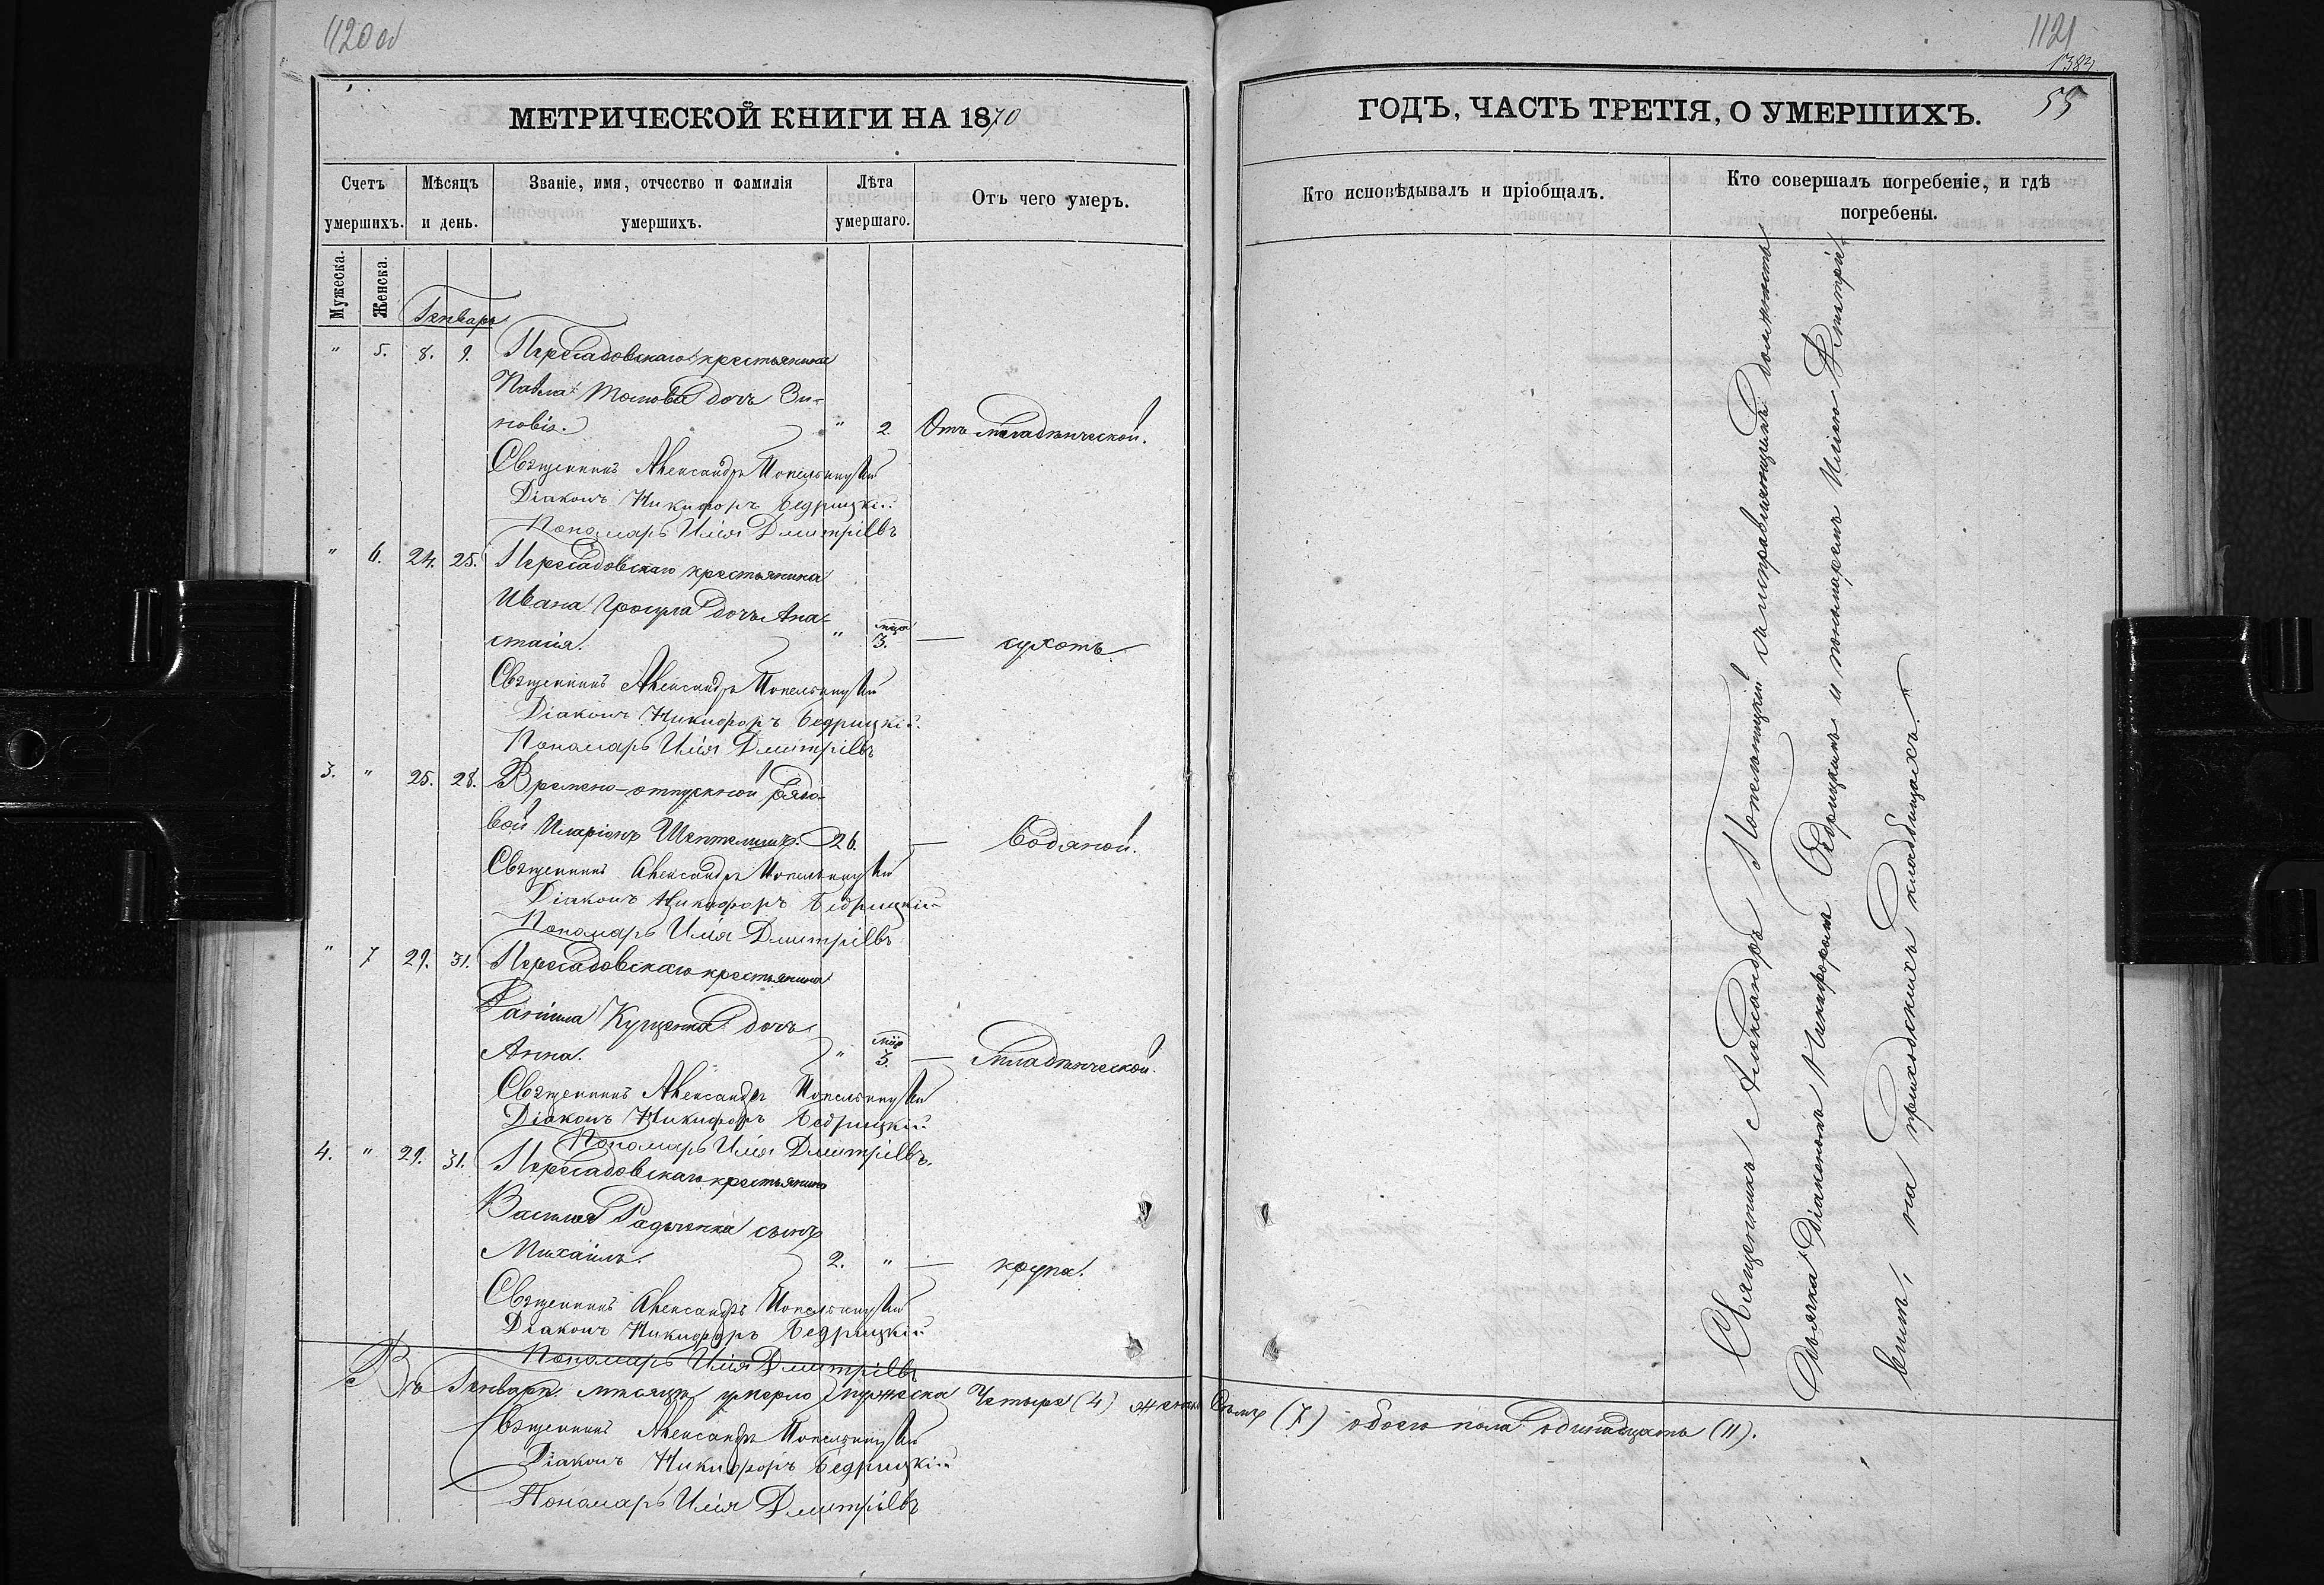 1120 об
МЕТРИЧЕСКОЙ КНИГИ НА 1870
Счетъ умершихъ.
Мѣсяцъ и день.
Званіе, имя, отчество и фамилія умершихъ.
Лѣта умершаго.
Отъ чего умеръ.
Мужеска.
Женска.
Январь
" 5. 8. 9. Пересадовскаго крестьянина
Павла дочь Зи-
новія. " 2. Отъ младенческой.
Священникъ Александръ Попельницкій
Діаконъ Никифоръ Бедрицкій
Пономарь Илія Дмитріевъ
" 6. 24. 25. Пересадовскаго крестьянина
Ивана Гросула дочь Ана-
стасія. " мца 3. — сухотъ.
Священникъ Александръ Попельницкій
Діаконъ Никифоръ Бедрицкій
Пономарь Илія Дмитріевъ
3. " 25. 28. Времено-отпускной рядо-
вой Иларіонъ 26. — водяной.
Священникъ Александръ Попельницкій
Діаконъ Никифоръ Бедрицкій
Пономарь Илія Дмитріевъ
" 7 29. 31. Пересадовскаго крестьянина
Даніила Куценка дочь
Анна. " 3. — младенческой.
Священникъ Александръ Попельницкій
Діаконъ Никифоръ Бедрицкій
Пономарь Илія Дмитріевъ.
4. " 29. 31. Пересадовскаго крестьянина
Василія Радченка сынъ
Михаилъ. 2. " — крупа.
Священникъ Александръ Попельницкій
Діаконъ Никифоръ Бедрицкій
Пономарь Илія Дмитріевъ
Въ Январѣ мѣсяцѣ умерло мужеска Четыре (4) женска Семь (7) обоего пола одинадцать (11).
Священникъ Александръ Попельницкій
Діаконъ Никифоръ Бедрицкій
Пономарь Илія Дмитріевъ
1121
1383
55
ГОДЪ, ЧАСТЬ ТРЕТІЯ, О УМЕРШИХЪ.
Кто исповѣдывалъ и пріобщалъ.
Кто совершалъ погребеніе, и гдѣ погребены.
Священникъ Александръ Попельницкій съ исправляющимъ должность
дьячка Діакономъ Никифоромъ Бедрицкимъ и пономаремъ Иліею Дмитріе-
вимъ, на приходскихъ кладбищахъ.